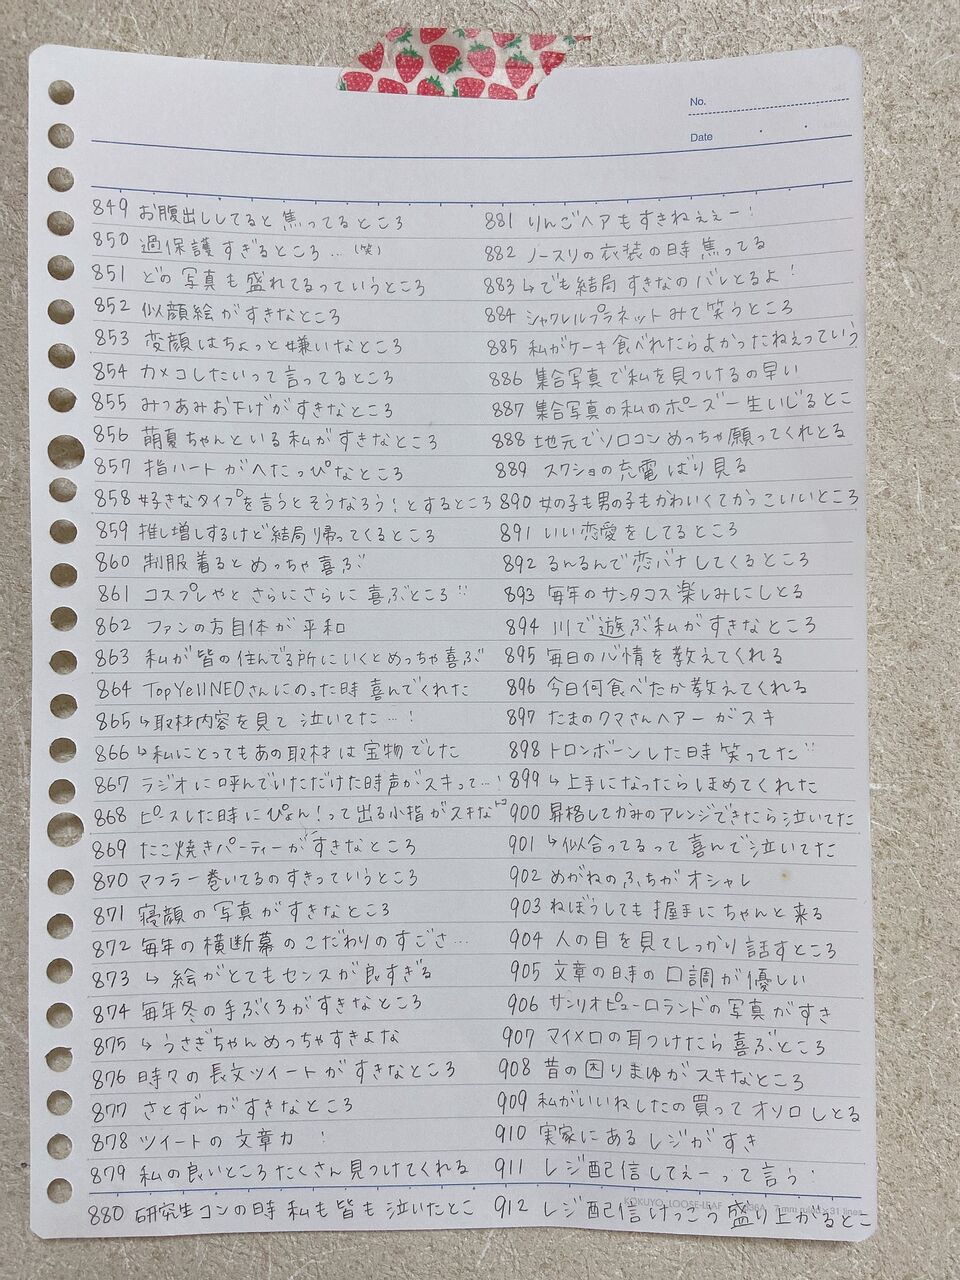 No.
Date
849 お腹出ししてると焦ってるところ
850 過保護すぎるところ…(笑)
851 どの写真も盛れてるっていうところ
852 似顔絵がすきなところ
853 変顔はちょっと嫌いなところ
854 カメコしたいって言ってるところ
855 みつあみお下げがすきなところ
856 萌夏ちゃんといる私がすきなところ
857 指ハートがへたっぴなところ
858 好きなタイプを言うとそうなろう!とするところ
859 推し増しするけど結局帰ってくるところ
860 制服着るとめっちゃ喜ぶ
861 コスプレやとさらにさらに喜ぶところ
862 ファンの方自体が平和
863 私が皆の住んでる所にいくとめっちゃ喜ぶ
864 TopYellNEOさんにのった時喜んでくれた
865 ↳取材内容を見て泣いてた…!
866 ↳私にとってもあの取材は宝物でした
867 ラジオに呼んでいただけた時声がスキって…!
868 ピースした時にぴょん!って出る小指がスキなとこ
869 たこ焼きパーティーがすきなところ
870 マフラー巻いてるのすきっていうところ
871 寝顔の写真がすきなところ
872 毎年の横断幕のこだわりのすごさ…
873 ↳絵がとてもセンスが良すぎる
874 毎年冬の手ぶくろがすきなところ
875 ↳うさぎちゃんめっちゃすきよな
876 時々の長文ツイートがすきなところ
877 さとずんがすきなところ
878 ツイートの文章力!
879 私の良いところたくさん見つけてくれる
880 研究生コンの時私も皆も泣いたとこ
881 りんごヘアもすきねぇぇー!
882 ノースリの衣装の時焦ってる
883 ↳でも結局すきなのバレとるよ!
884 シャクレルプラネットみて笑うところ
885 私がケーキ食べれたらよかったねえっていう
886 集合写真で私を見つけるの早い
887 集合写真の私のポーズ一生いじるとこ
888 地元でソロコンめっちゃ願ってくれとる
889 スクショの充電ばり見る
890 女の子も男の子もかわいくてかっこいいところ
891 いい恋愛をしてるところ
892 るんるんで恋バナしてくるところ
893 毎年のサンタコス楽しみにしとる
894 川で遊ぶ私がすきなところ
895 毎日の心情を教えてくれる
896 今日何食べたか教えてくれる
897 たまのクマさんヘアーがスキ
898 トロンボーンした時笑ってた
899 ↳上手になったらほめてくれた
900 昇格してかみのアレンジできたら泣いてた
901 ↳似合ってるって喜んで泣いてた
902 めがねのふちがオシャレ
903 ねぼうしても握手にちゃんと来る
904 人の目を見てしっかり話すところ
905 文章の時の口調が優しい
906 サンリオピューロランドの写真がすき
907 マイメロの耳つけたら喜ぶところ
908 昔の困りまゆがスキなところ
909 私がいいねしたの買ってオソロしとる
910 実家にあるレジがすき
911 レジ配信してえーって言う
912 レジ配信けっこう盛り上がるとこ
KOKUYO LOOSE-LEAF 7 mm ruled × 31 lines